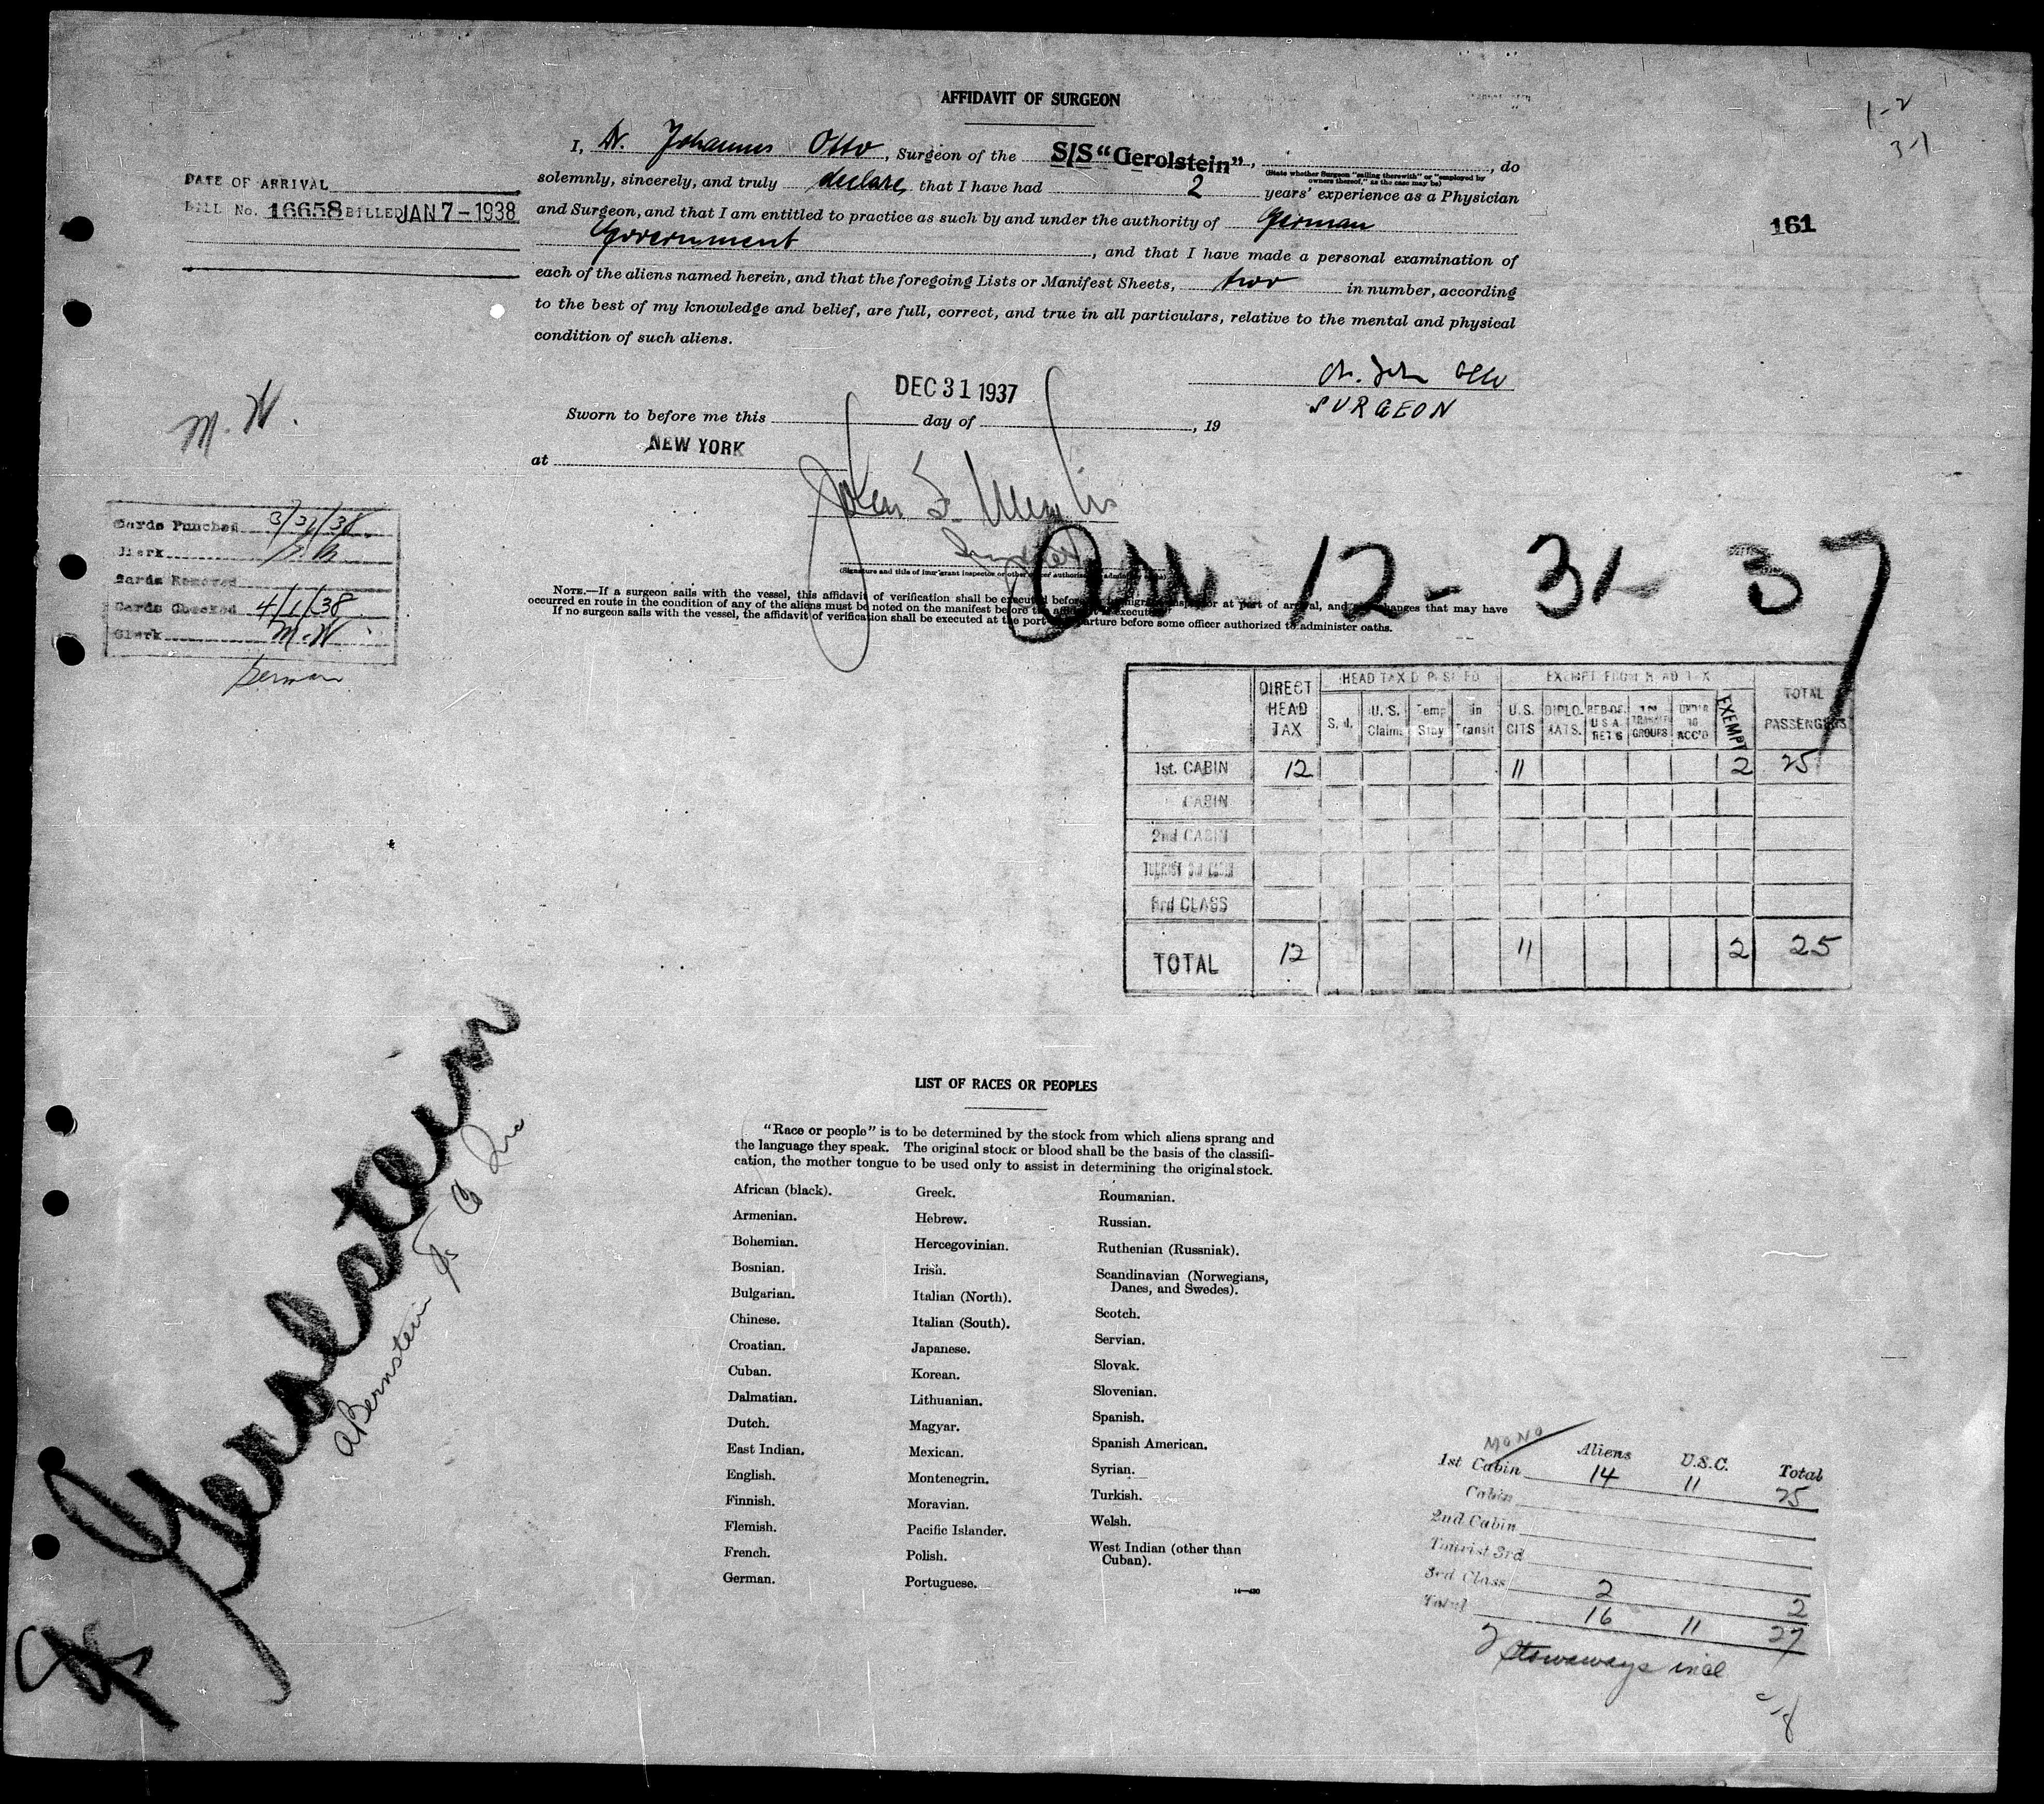 AFFIDAVIT OF SURGEON
1-2
3-1
I, Dr. Johannes Otto, Surgeon of the S/S "Gerolstein", , do
(State whether Surgeon "sailing therewith" or "employed by
owners thereof," as the case may be)
solemnly, sincerely, and truly declare that I have had 2 years' experience as a Physician
and Surgeon, and that I am entitled to practice as such by and under the authority of German
Government, and that I have made a personal examination of
each of the aliens named herein, and that the foregoing Lists or Manifest Sheets, two in number, according
to the best of my knowledge and belief, are full, correct, and true in all particulars, relative to the mental and physical
condition of such aliens.
DATE OF ARRIVAL
BILL No. 16658 BILLED JAN 7-1938
161
SURGEON
DEC 31 1937
Sworn to before me this day of , 19
at NEW YORK
M.W.
John
Arr 12-31-37
(Signature and title of immigrant inspector or other officer authorized to administer oaths)
NOTE.—If a surgeon sails with the vessel, this affidavit of verification shall be executed before an immigrant inspector at port of arrival, and any changes that may have
occurred en route in the condition of any of the aliens must be noted on the manifest before the affidavit is executed.
If no surgeon sails with the vessel, the affidavit of verification shall be executed at the port of departure before some officer authorized to administer oaths.
Cards Punched 3/31/38
Clerk
Cards Removed
Cards Checked 4/1/38
Clerk M.W
German
DIRECT HEAD TAX
HEAD TAX DEPOSITED
EXEMPT FROM HEAD TAX
TOTAL PASSENGERS
U.S. Claim Temp Stay In Transit U.S. CITS DIPLOMATS. EXEMPT
1st. CABIN 12 11 2 25
CABIN
2nd CABIN
TOURIST 3rd CABIN
3rd CLASS
TOTAL 12 11 2 25
Gerolstein
A Bernstein
LIST OF RACES OR PEOPLES
"Race or people" is to be determined by the stock from which aliens sprang and
the language they speak. The original stock or blood shall be the basis of the classifi-
cation, the mother tongue to be used only to assist in determining the original stock.
African (black).
Armenian.
Bohemian.
Bosnian.
Bulgarian.
Chinese.
Croatian.
Cuban.
Dalmatian.
Dutch.
East Indian.
English.
Finnish.
Flemish.
French.
German.
Greek.
Hebrew.
Hercegovinian.
Irish.
Italian (North).
Italian (South).
Japanese.
Korean.
Lithuanian.
Magyar.
Mexican.
Montenegrin.
Moravian.
Pacific Islander.
Polish.
Portuguese.
Roumanian.
Russian.
Ruthenian (Russniak).
Scandinavian (Norwegians,
Danes, and Swedes).
Scotch.
Servian.
Slovak.
Slovenian.
Spanish.
Spanish American.
Syrian.
Turkish.
Welsh.
West Indian (other than
Cuban).
MONO
Aliens U.S.C. Total
1st Cabin 14 11 25
Cabin
2nd Cabin
Tourist 3rd
3rd Class 2 2
Total 16 11 27
2 Stowaways incl